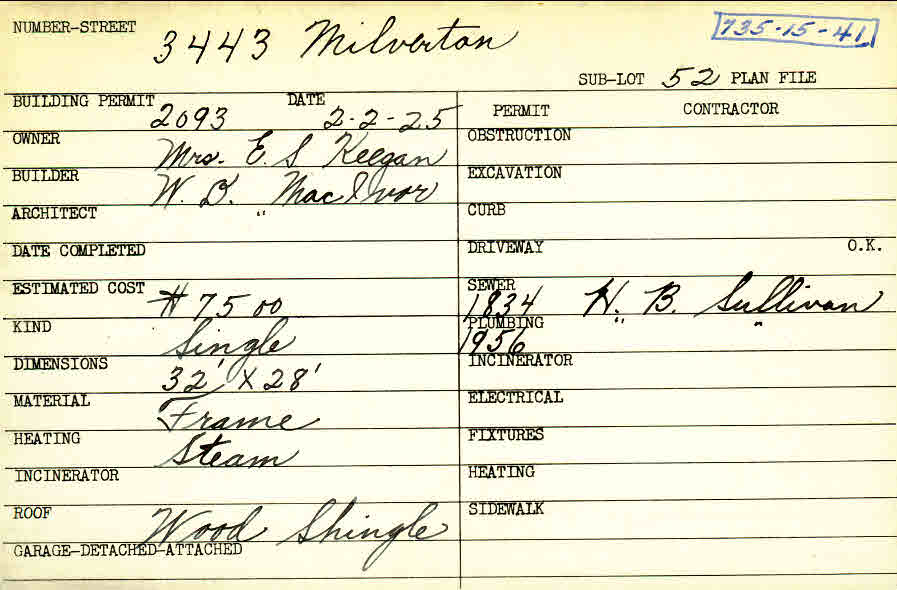 NUMBER-STREET 3443 Milverton 735-15-41
SUB-LOT 52 PLAN FILE
BUILDING PERMIT 2093 DATE 2-2-25
OWNER Mrs. E. S Keegan
BUILDER W. B. MacIvor
ARCHITECT "
DATE COMPLETED
ESTIMATED COST # 7500
KIND Single
DIMENSIONS 32' X 28'
MATERIAL Frame
HEATING Steam
INCINERATOR
ROOF Wood Shingle
GARAGE-DETACHED-ATTACHED
PERMIT CONTRACTOR
OBSTRUCTION
EXCAVATION
CURB
DRIVEWAY O.K.
SEWER 1834 H. B. Sullivan
PLUMBING 1956 " "
INCINERATOR
ELECTRICAL
FIXTURES
HEATING
SIDEWALK